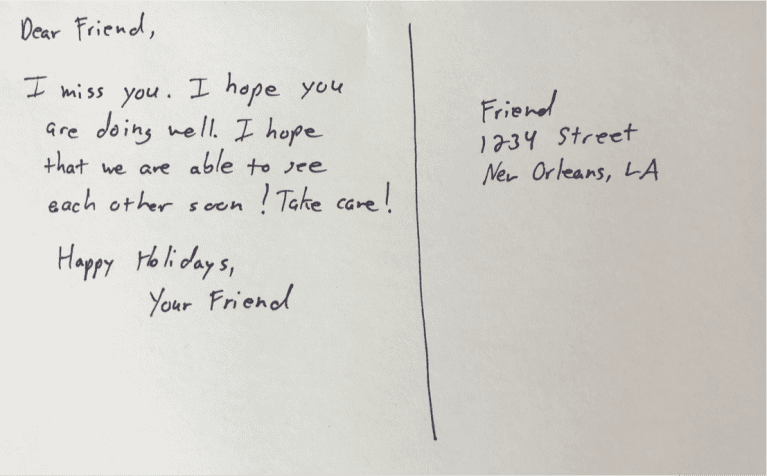 Dear Friend,
I miss you. I hope you
are doing well. I hope
that we are able to see
each other soon! Take care!
Happy Holidays,
Your Friend
Friend
1234 Street
New Orleans, LA